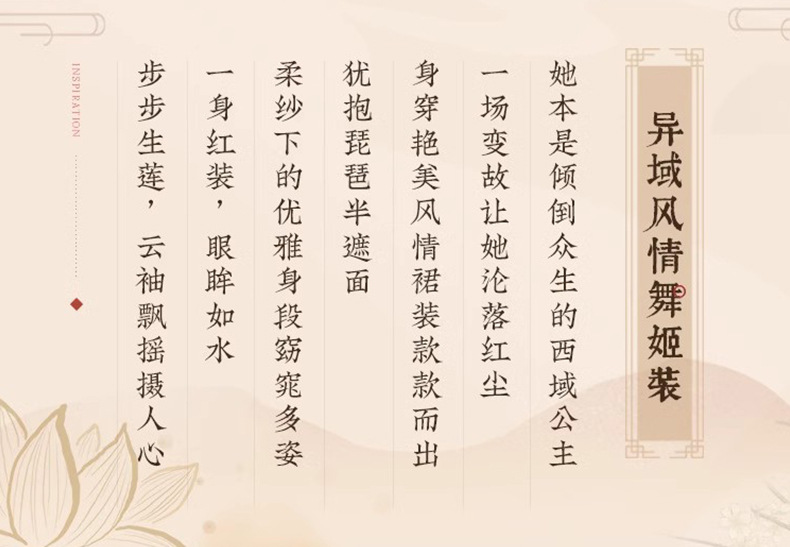 异域风情舞姬装
她本是倾倒众生的西域公主
一场变故让她沦落红尘
身穿艳美风情裙装款款而出
犹抱琵琶半遮面
柔纱下的优雅身段窈窕多姿
一身红装，眼眸如水
步步生莲，云袖飘摇摄人心
INSPIRATION